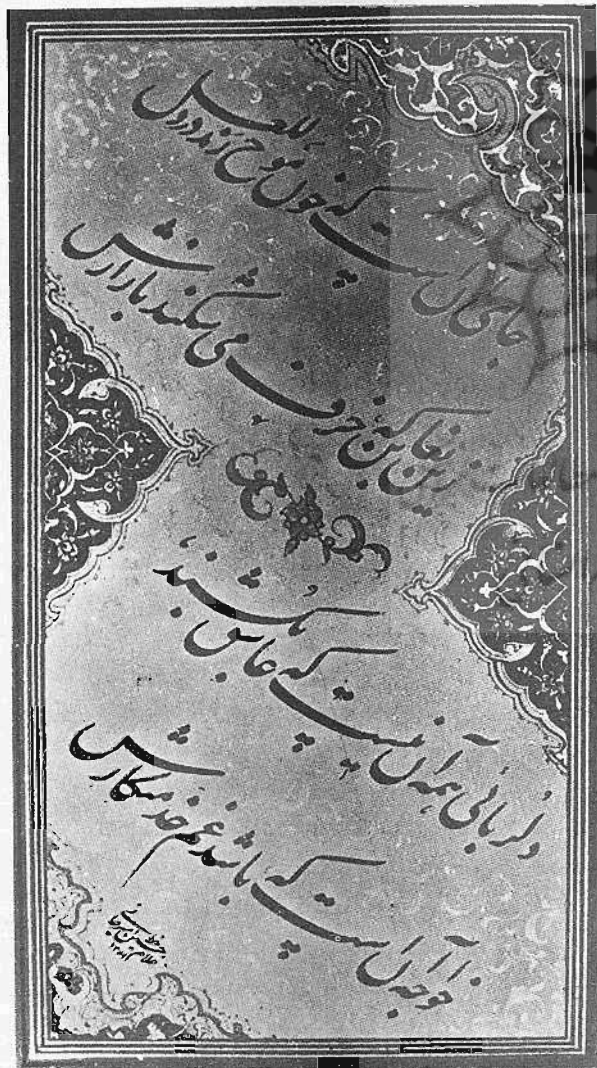 جای آنست که خون موج زند در دل لعل
زین تغابن که خزف می‌شکند بازارش
دلربائی همه آن نیست که عاشق بکشند
خواجه آنست که باشد غم خدمتکارش
غلامحسین امیرخانی